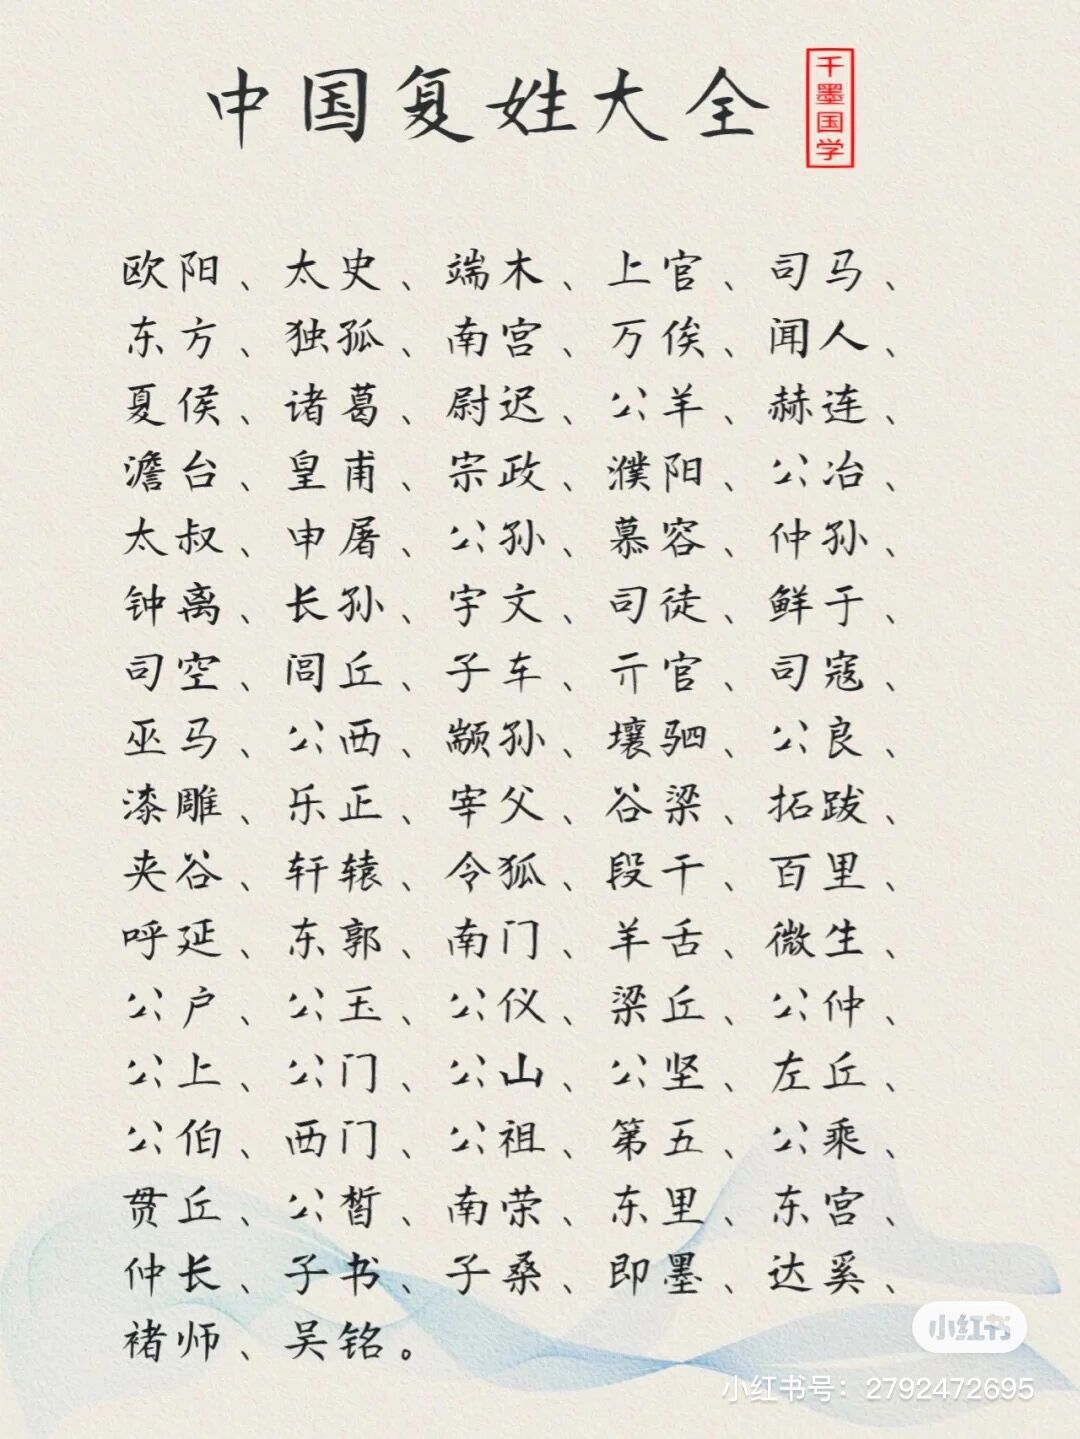 中国复姓大全
千墨国学
欧阳、太史、端木、上官、司马、
东方、独孤、南宫、万俟、闻人、
夏侯、诸葛、尉迟、公羊、赫连、
澹台、皇甫、宗政、濮阳、公冶、
太叔、申屠、公孙、慕容、仲孙、
钟离、长孙、宇文、司徒、鲜于、
司空、闾丘、子车、亓官、司寇、
巫马、公西、颛孙、壤驷、公良、
漆雕、乐正、宰父、谷梁、拓跋、
夹谷、轩辕、令狐、段干、百里、
呼延、东郭、南门、羊舌、微生、
公户、公玉、公仪、梁丘、公仲、
公上、公门、公山、公坚、左丘、
公伯、西门、公祖、第五、公乘、
贯丘、公皙、南荣、东里、东宫、
仲长、子书、子桑、即墨、达奚、
褚师、吴铭。
小红书
小红书号：2792472695